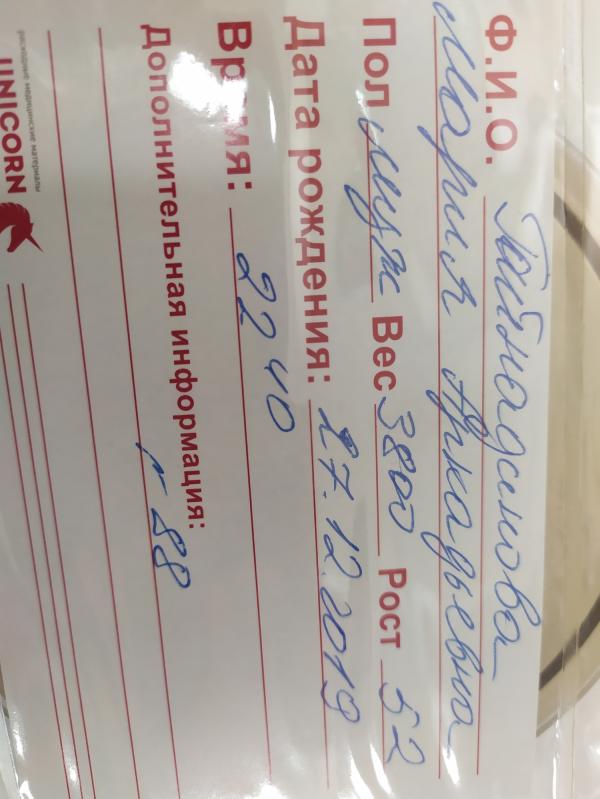 Ф.И.О. Гайнадинова
Мария Аркадьевна
Пол муж Вес 3800 Рост 52
Дата рождения: 27.12.2019
Время: 22 40
Дополнительная информация:
г 88
расходные медицинские материалы
UNICORN